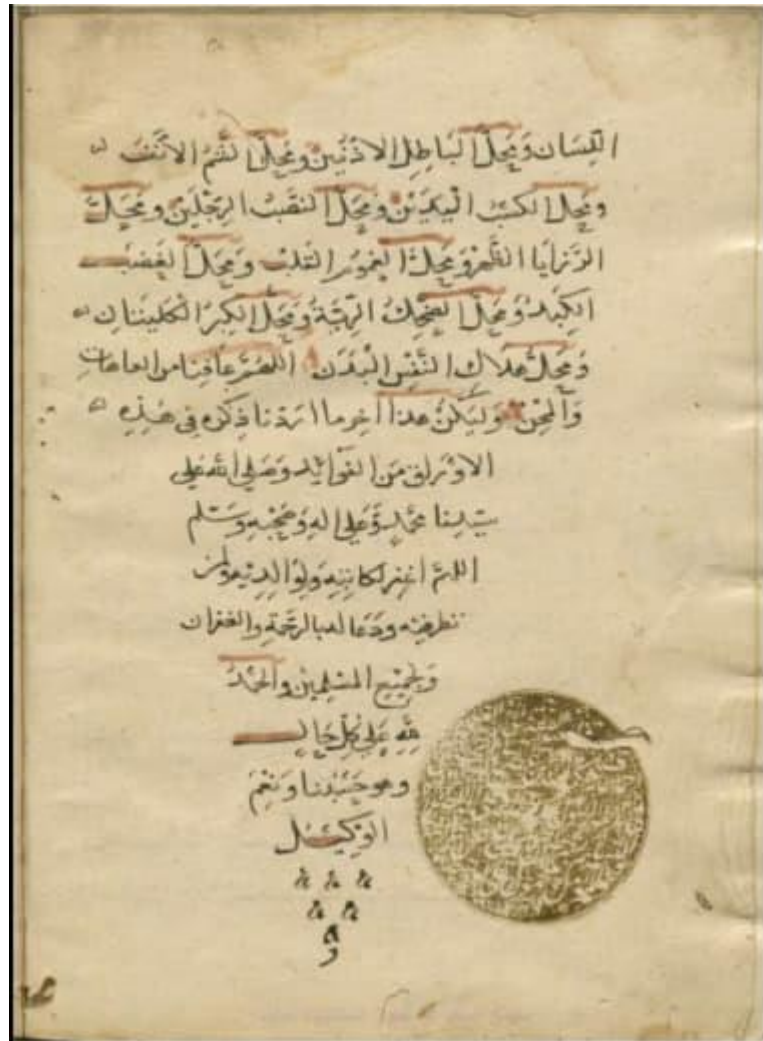 اللسان ومحل الباطل الاذنين ومحل الشم الانف
ومحل الكسب اليدين ومحل النصب الرجلين ومحل
الرزايا الظهر ومحل الغموم القلب ومحل الغضب
الكبد ومحل الضحك الرية ومحل الكبر الكليتان
ومحل هلاك النفس البدن اللهم عافنا من العاهات
والمحن وليكن هذا اخر ما اردنا ذكره في هذه
الاوراق من الفوائد وصلى الله على
سيدنا محمد وعلى اله وصحبه وسلم
اللهم اغفر لكاتبه ولوالديه ولمن
نظر فيه ودعا له بالرحمة والغفران
ولجميع المسلمين والحمد
لله على كل حال
وهو حسبنا ونعم
الوكيل